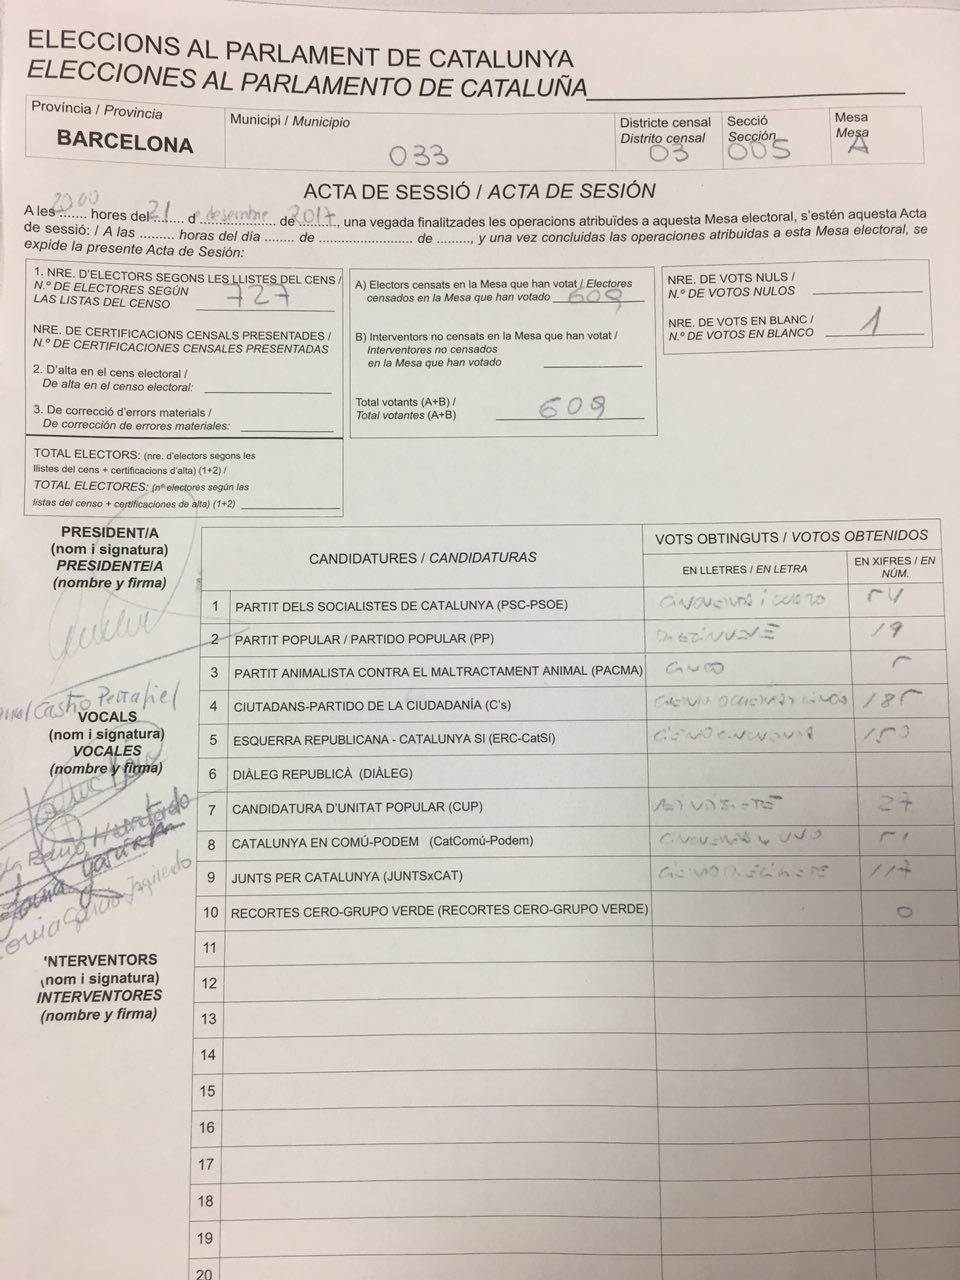 ELECCIONS AL PARLAMENT DE CATALUNYA
ELECCIONES AL PARLAMENTO DE CATALUÑA
Província / Provincia
BARCELONA
Municipi / Municipio
033
Districte censal
Distrito censal
03
Secció
Sección
005
Mesa
Mesa
A
ACTA DE SESSIÓ / ACTA DE SESIÓN
A les 20:00 hores del 21 d e desembre de 2017, una vegada finalitzades les operacions atribuïdes a aquesta Mesa electoral, s'estén aquesta Acta
de sessió: / A las ......... horas del día ........ de ........................ de ........., y una vez concluidas las operaciones atribuidas a esta Mesa electoral, se
expide la presente Acta de Sesión:
1. NRE. D'ELECTORS SEGONS LES LLISTES DEL CENS /
N.º DE ELECTORES SEGÚN
LAS LISTAS DEL CENSO 727
NRE. DE CERTIFICACIONS CENSALS PRESENTADES /
N.º DE CERTIFICACIONES CENSALES PRESENTADAS
2. D'alta en el cens electoral /
De alta en el censo electoral:
3. De correcció d'errors materials /
De corrección de errores materiales:
TOTAL ELECTORS: (nre. d'electors segons les
llistes del cens + certificacions d'alta) (1+2) /
TOTAL ELECTORES: (nº electores según las
listas del censo + certificaciones de alta) (1+2)
A) Electors censats en la Mesa que han votat / Electores
censados en la Mesa que han votado 609
B) Interventors no censats en la Mesa que han votat /
Interventores no censados
en la Mesa que han votado
Total votants (A+B) /
Total votantes (A+B) 609
NRE. DE VOTS NULS /
N.º DE VOTOS NULOS
NRE. DE VOTS EN BLANC /
N.º DE VOTOS EN BLANCO 1
PRESIDENT/A
(nom i signatura)
PRESIDENTE/A
(nombre y firma)
Castro Peñafiel
VOCALS
(nom i signatura)
VOCALES
(nombre y firma)
Izquierdo
INTERVENTORS
(nom i signatura)
INTERVENTORES
(nombre y firma)
CANDIDATURES / CANDIDATURAS
VOTS OBTINGUTS / VOTOS OBTENIDOS
EN LLETRES / EN LETRA
EN XIFRES / EN
NÚM.
1 PARTIT DELS SOCIALISTES DE CATALUNYA (PSC-PSOE) cincuenta i cuatro 54
2 PARTIT POPULAR / PARTIDO POPULAR (PP) 19
3 PARTIT ANIMALISTA CONTRA EL MALTRACTAMENT ANIMAL (PACMA) cinco 5
4 CIUTADANS-PARTIDO DE LA CIUDADANÍA (C's) 185
5 ESQUERRA REPUBLICANA - CATALUNYA SI (ERC-CatSí) 150
6 DIÀLEG REPUBLICÀ (DIÀLEG)
7 CANDIDATURA D'UNITAT POPULAR (CUP) 27
8 CATALUNYA EN COMÚ-PODEM (CatComú-Podem) cincuenta y uno 51
9 JUNTS PER CATALUNYA (JUNTSxCAT) 117
10 RECORTES CERO-GRUPO VERDE (RECORTES CERO-GRUPO VERDE) 0
11
12
13
14
15
16
17
18
19
20